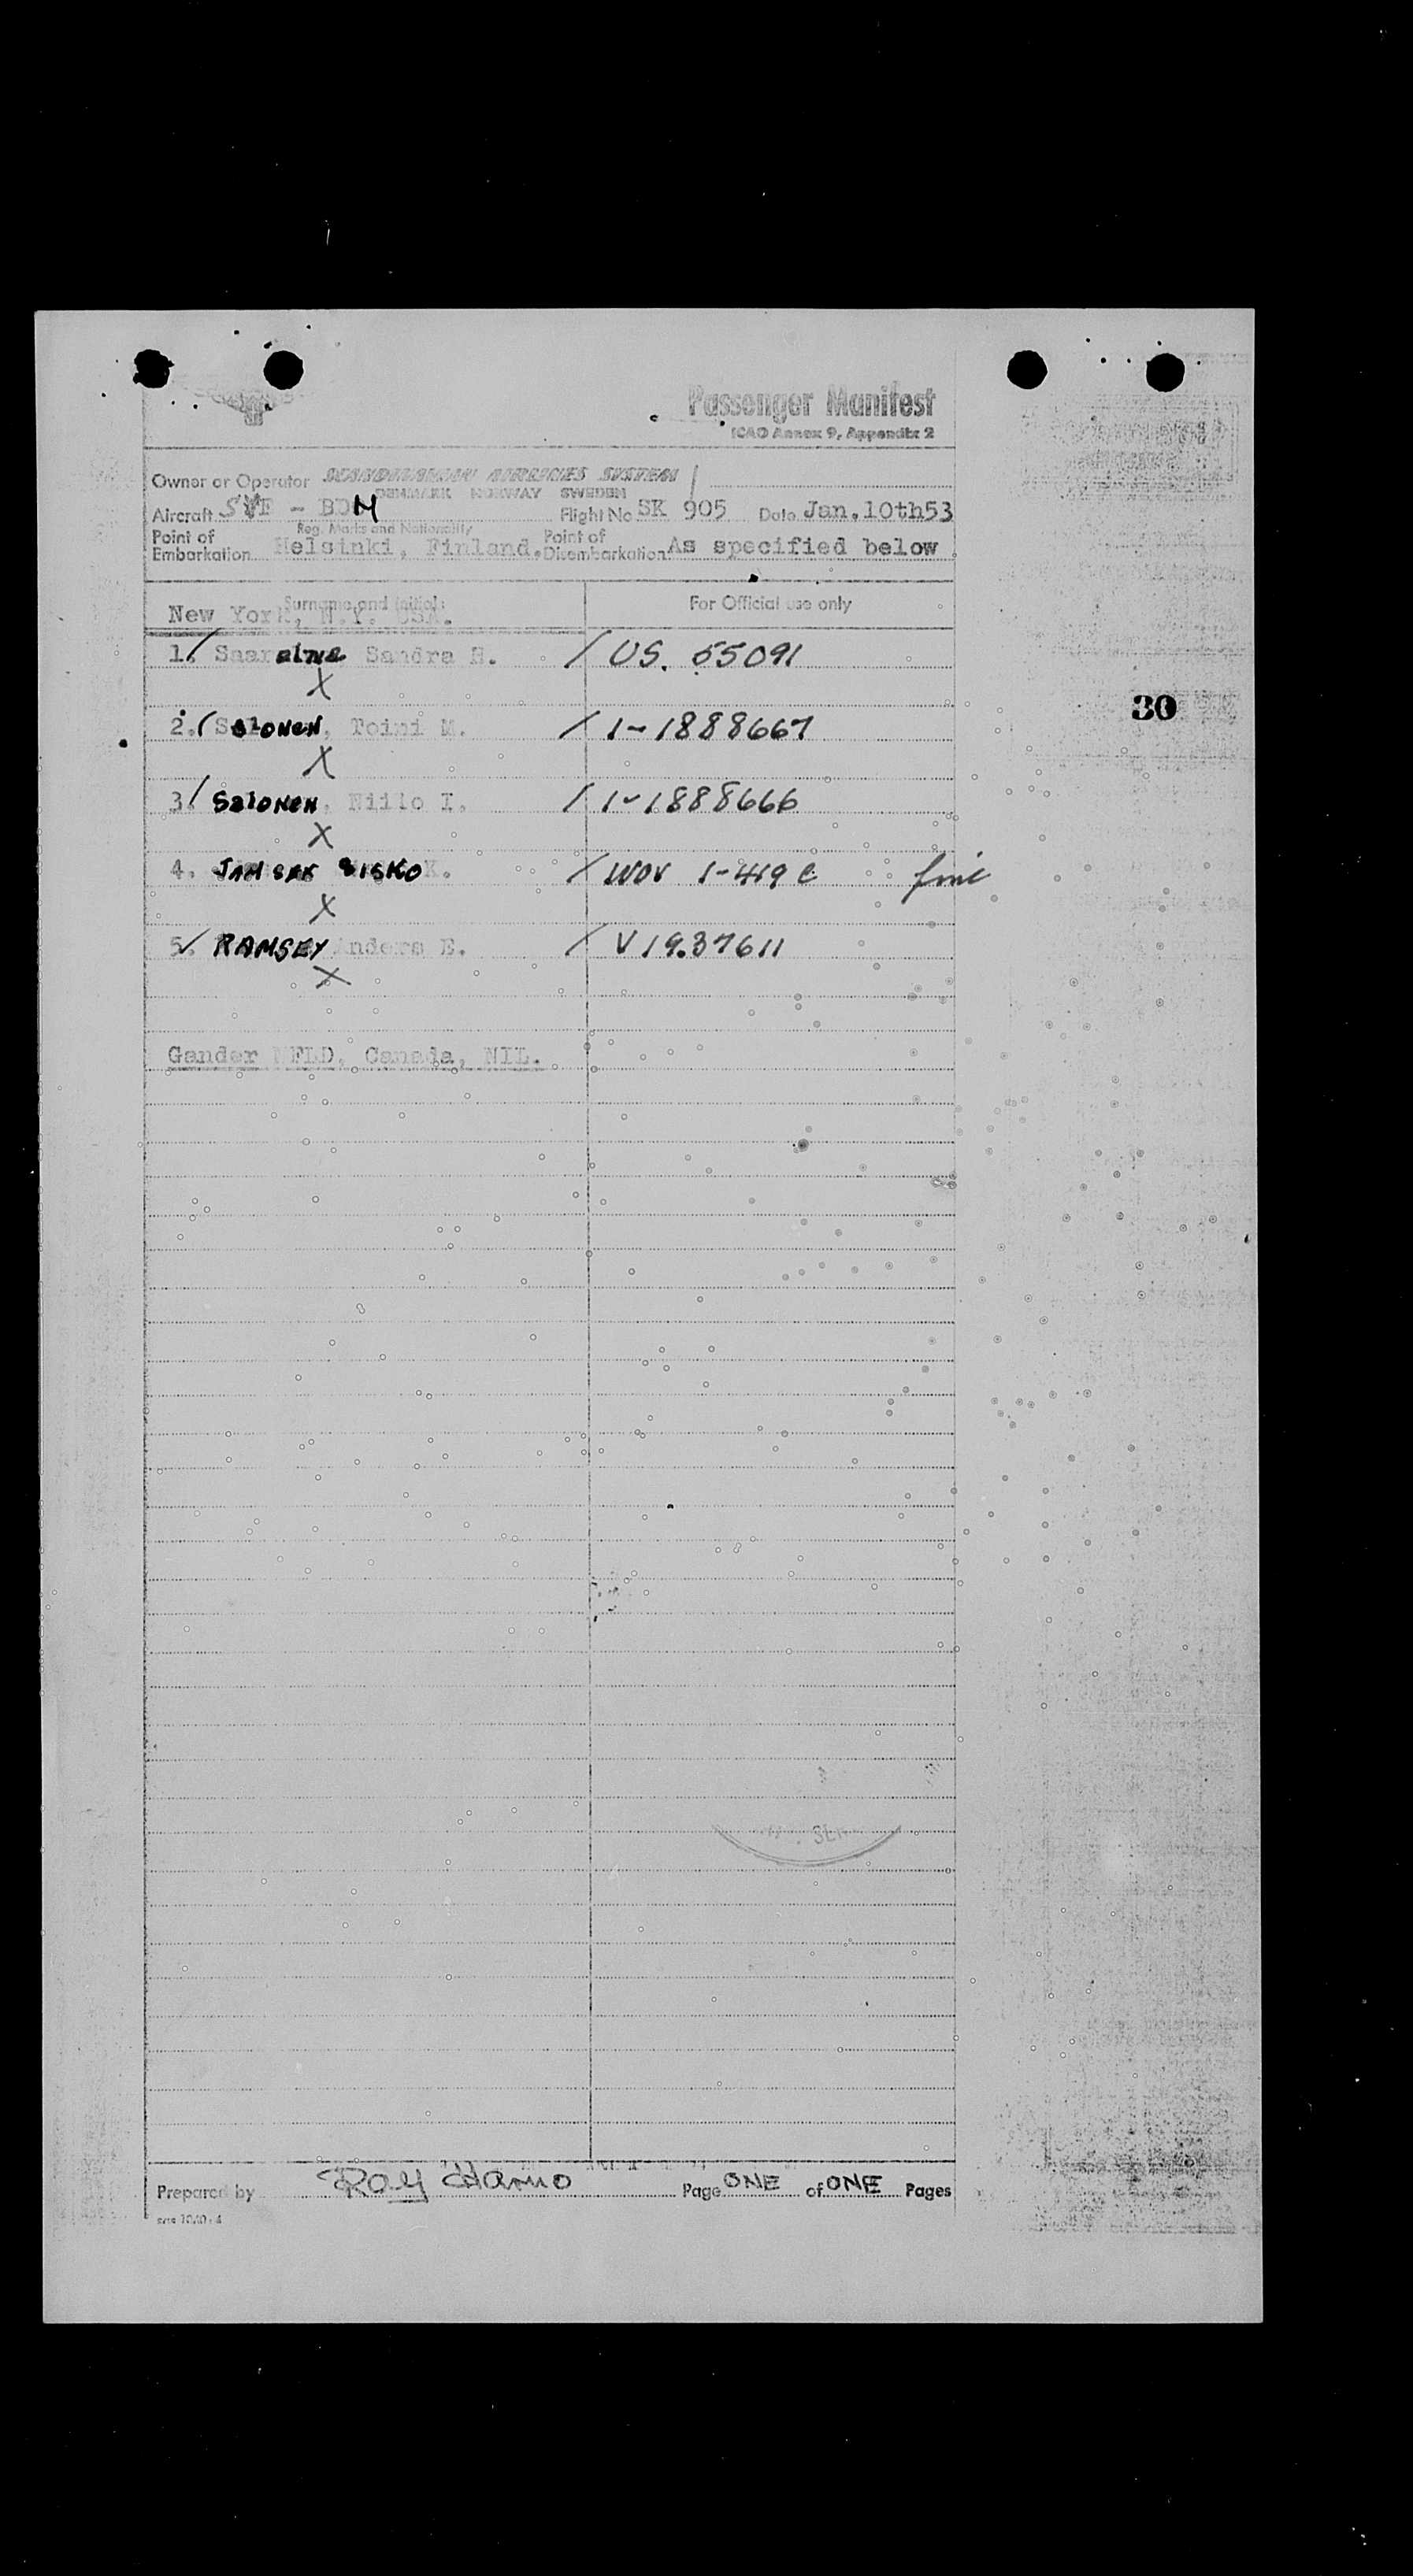 Passenger Manifest
ICAO Annex 9, Appendix 2
Owner or Operator SCANDINAVIAN AIRLINES SYSTEM
DENMARK NORWAY SWEDEN
Aircraft - BDM Flight No SK 905 Date Jan.10th53
Reg. Marks and Nationality
Point of Embarkation Helsinki, Finland. Point of Disembarkation As specified below
Surname and initials For Official use only
New York, N.Y. USA.
1. Sandra H. / US. 55091
X
2. Salonen, Toimi M. / 1-1888667
X
3. Salonen, Niilo I. / 1-1888666
X
4. SISKO K. / 1-419 C
X
5. RAMSEY Anders E. / V19.37611
X
30
Gander NFLD, Canada, NIL.
Prepared by Roy Page ONE of ONE Pages